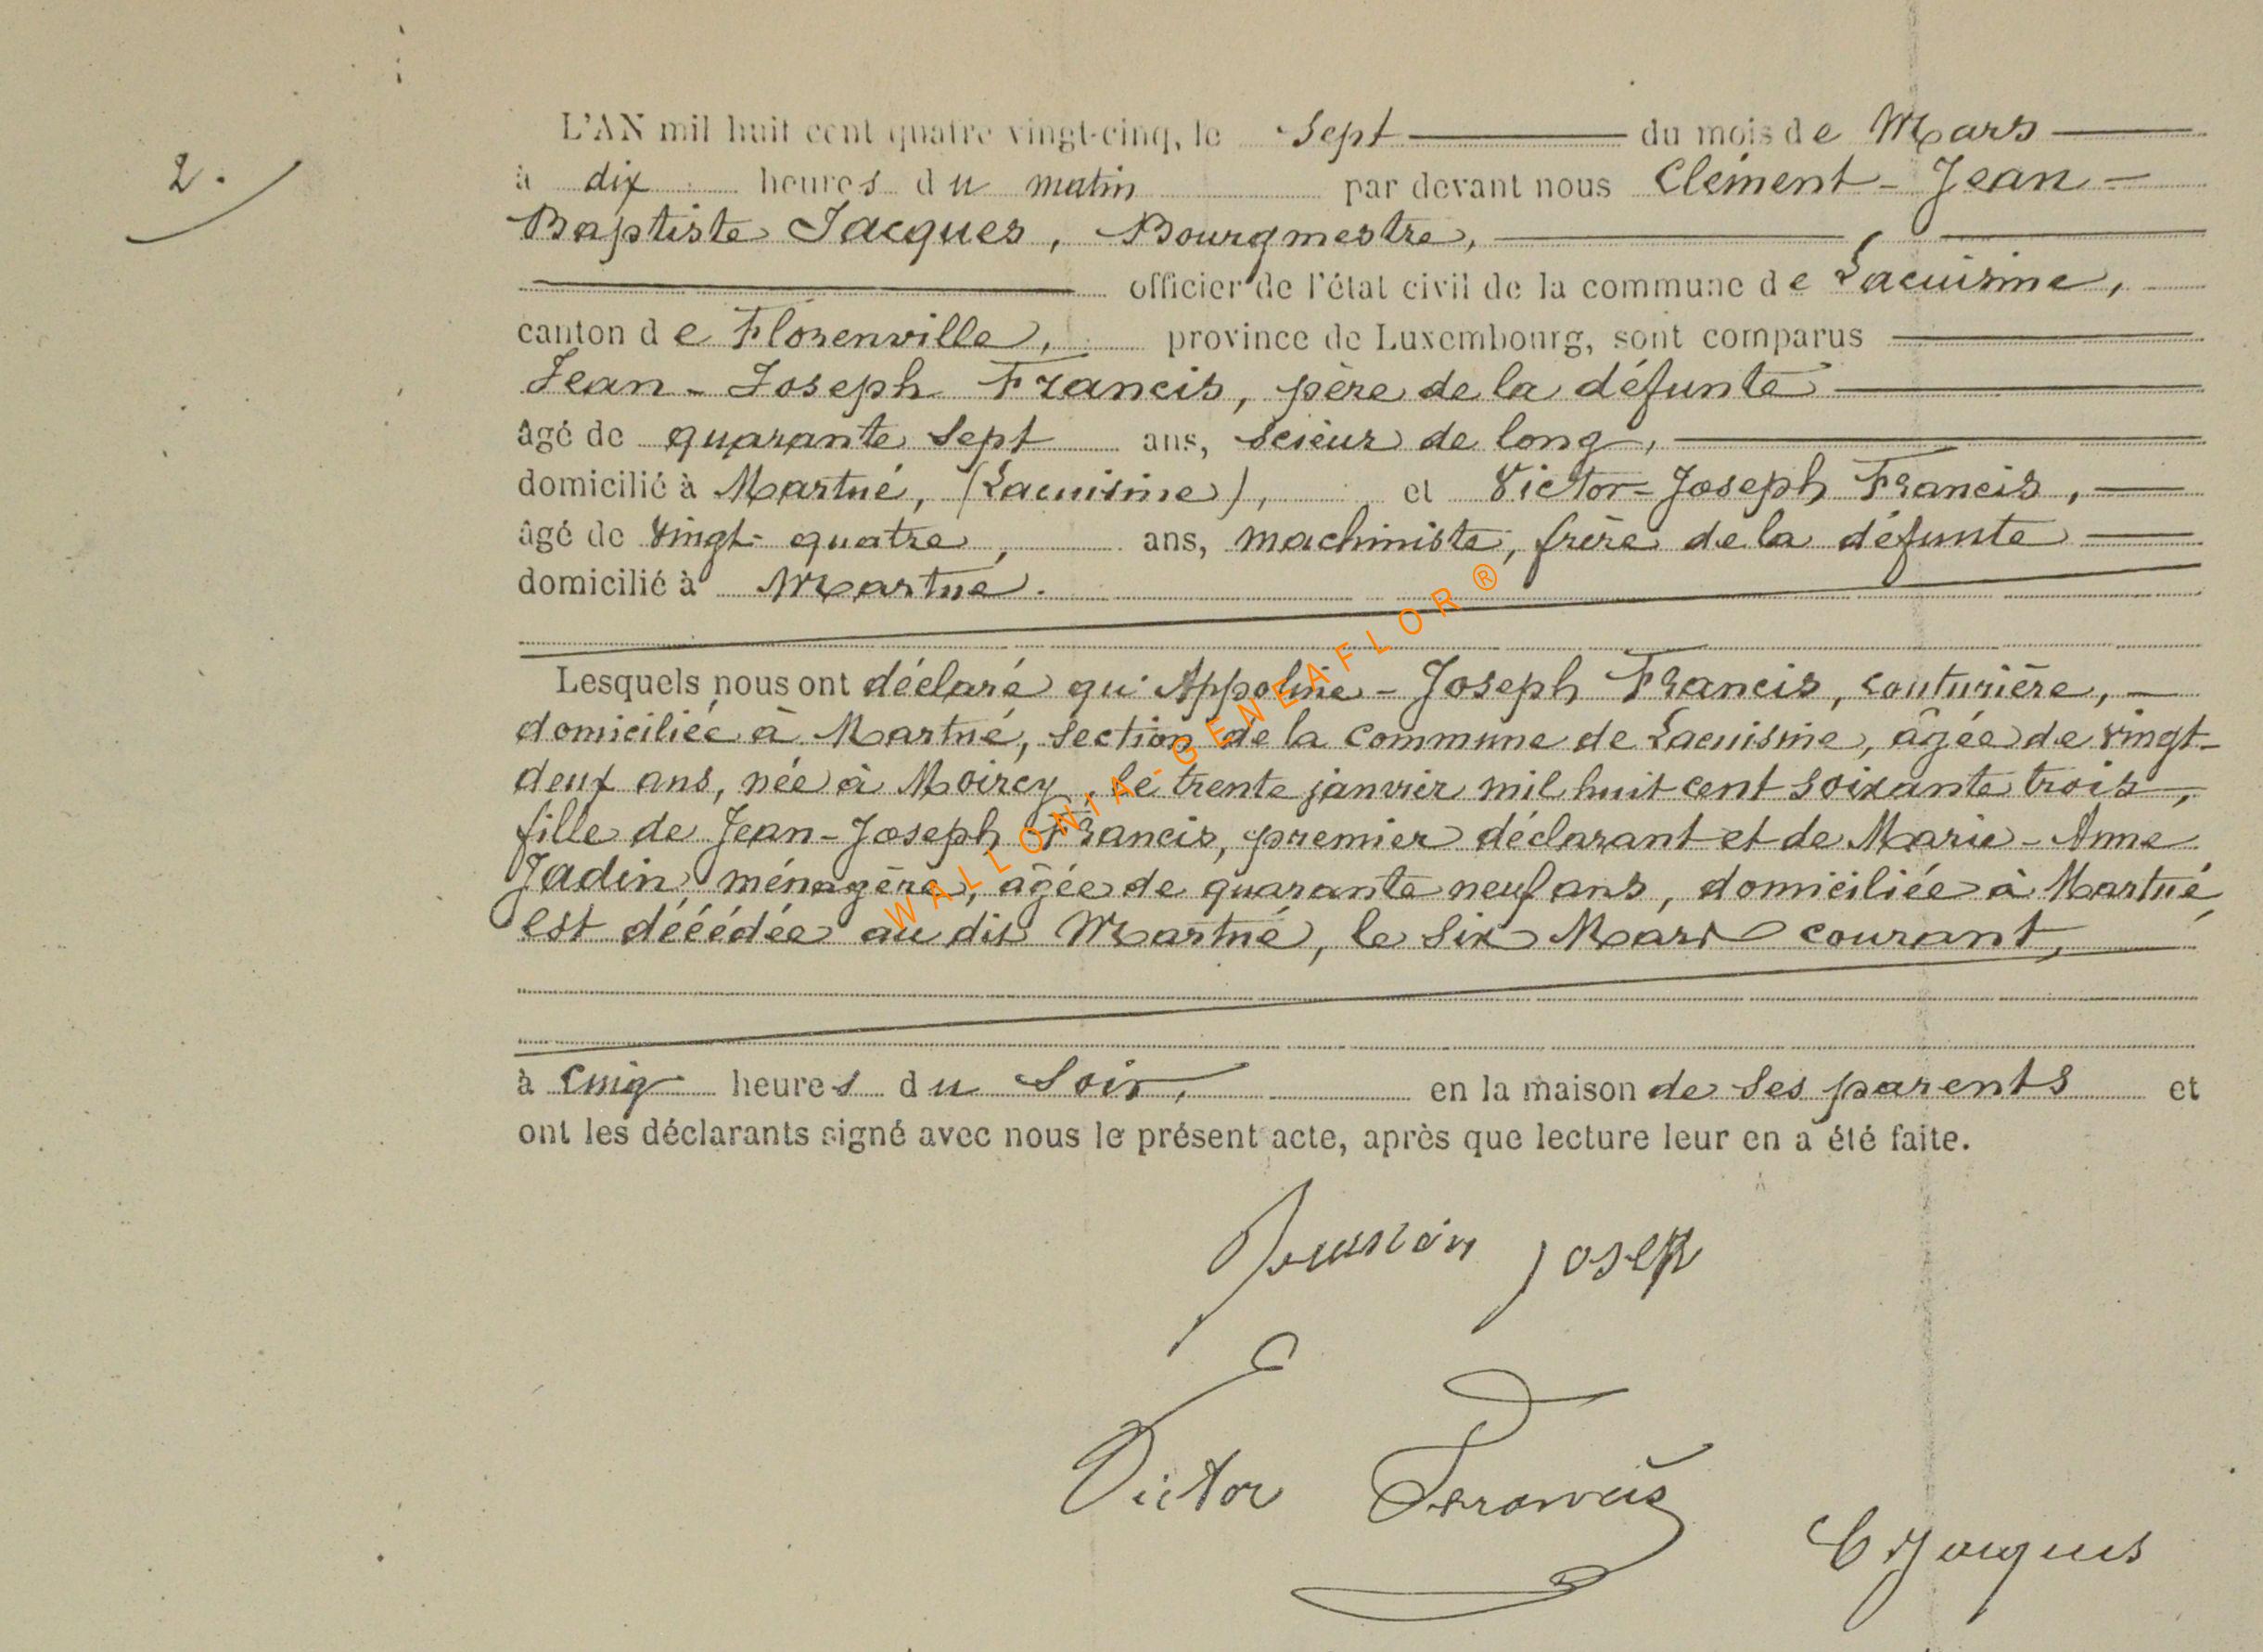 2.
L'AN mil huit cent quatre vingt-cinq, le Sept du mois de Mars
à dix heures du matin par devant nous Clément-Jean-
Baptiste Jacques, Bourgmestre,
officier de l'état civil de la commune de Lacuisine,
canton de Florenville, province de Luxembourg, sont comparus
Jean-Joseph Francis, père de la défunte
âgé de quarante sept ans, Scieur de long,
domicilié à Martué, (Lacuisine), et Victor-Joseph Francis,
âgé de Vingt-quatre, ans, machiniste, frère de la défunte
domicilié à Martué.
Lesquels nous ont déclaré qu'Appoline-Joseph Francis, couturière,
domiciliée à Martué, Section de la Commune de Lacuisine, âgée de Vingt-
deux ans, née à Moircy, le trente janvier mil huit cent soixante trois,
fille de Jean-Joseph Francis, premier déclarant et de Marie-Anne
Jadin ménagère, âgée de quarante neuf ans, domiciliée à Martué,
est décédée au dit Martué, le Six Mars courant,
à Cinq heures du Soir, en la maison de Ses parents et
ont les déclarants signé avec nous le présent acte, après que lecture leur en a été faite.
Josep
Victor Francis
CJJacques
WALLONIA-GENEAFLOR®